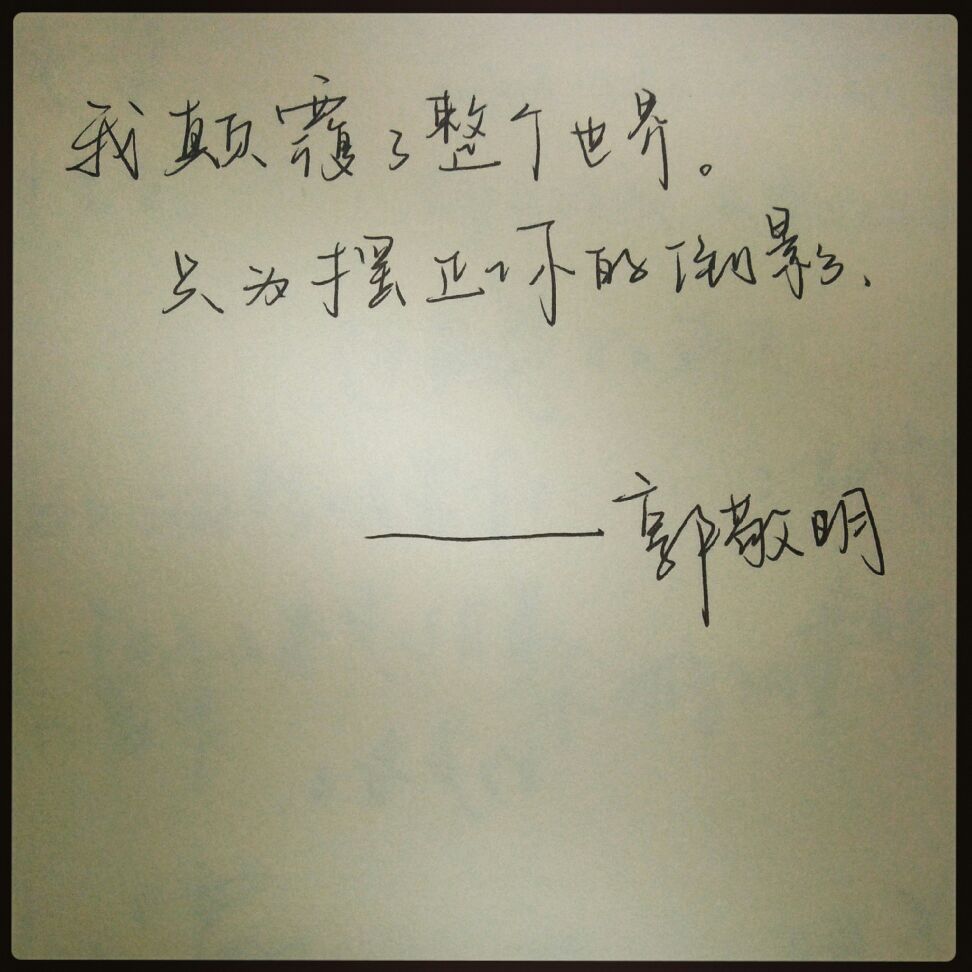 我颠覆了整个世界。
只为摆正你的倒影、
——郭敬明